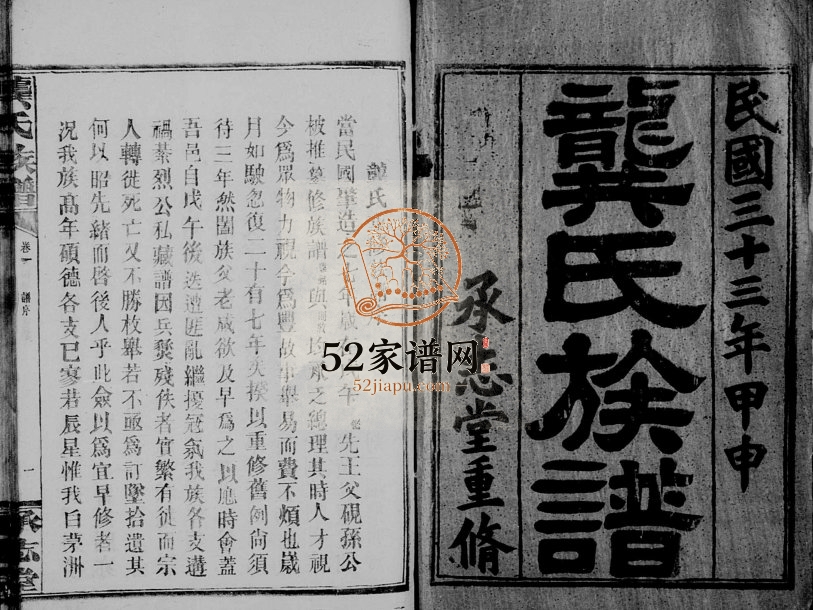 民國三十三年甲申
龔氏族譜
承志堂重脩
龔氏
當民國肇造之七年歲 先王父硯孫公
被推纂修族譜 與 之總理其時人才視
今為眾物力視今為豐故事舉易而費不煩也歲
月如駛忽復二十有七年矣揆以重修舊例尚須
待三年然闔族父老咸欲及早為之以應時會蓋
吾邑自戊午後迭遭匪亂繼擾寇氛我族各支遘
禍綦烈公私藏譜因兵燹殘佚者實繁有徒而宗
人轉徙死亡又不勝枚舉若不亟為訂墜拾遺其
何以昭先緒而啓後人乎此僉以為宜早修者一
況我族高年碩德各支已寥若辰星惟我白茅洲
龔氏族譜
卷一
譜序
一
承志堂
52家谱网
52jiapu.com